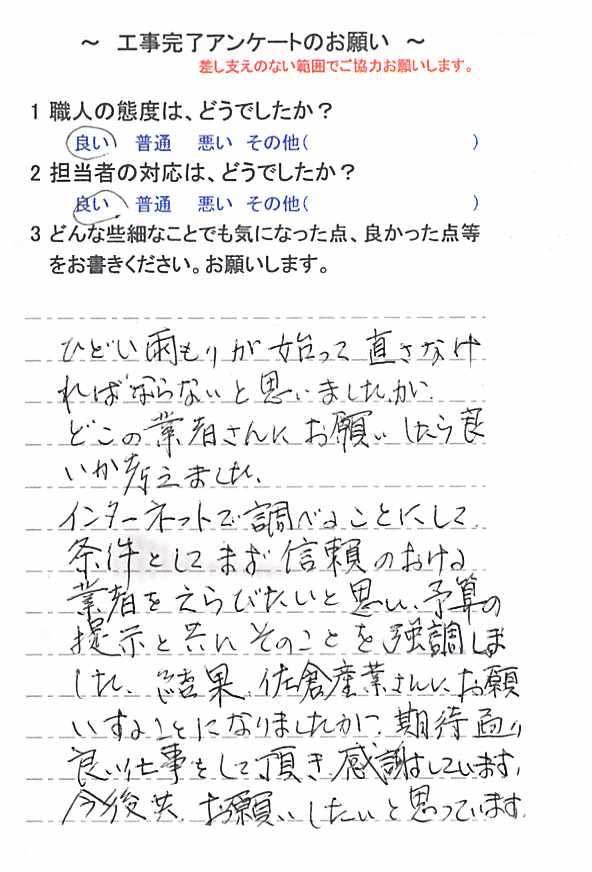 ～ 工事完了アンケートのお願い ～
差し支えのない範囲でご協力お願いします。
1 職人の態度は、どうでしたか？
良い 普通 悪い その他( )
2 担当者の対応は、どうでしたか？
良い 普通 悪い その他( )
3 どんな些細なことでも気になった点、良かった点等
をお書きください。お願いします。
ひどい雨もりが始って直さなけ
ればならないと思いましたが、
どこの業者さんにお願いしたら良
いか考えました。
インターネットで調べることにして
条件としてまず信頼のおける
業者をえらびたいと思い、予算の
提示と共にそのことを強調しま
した。結果、佐倉産業さんに、お願
いすることになりましたが、期待通り
良い仕事をして頂き感謝しています。
今後共、お願いしたいと思っています。